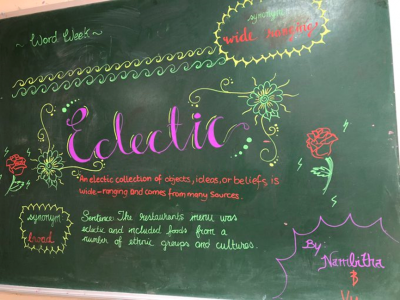 ~ Word Week ~
synonym
wide ranging
Eclectic
An electic collection of objects, ideas, or beliefs, is
wide-ranging and comes from many sources.
synonym
broad
Sentence: The restaurants menu was
eclectic and included foods from a
number of ethnic groups and cultures.
By:
Nambitha
&